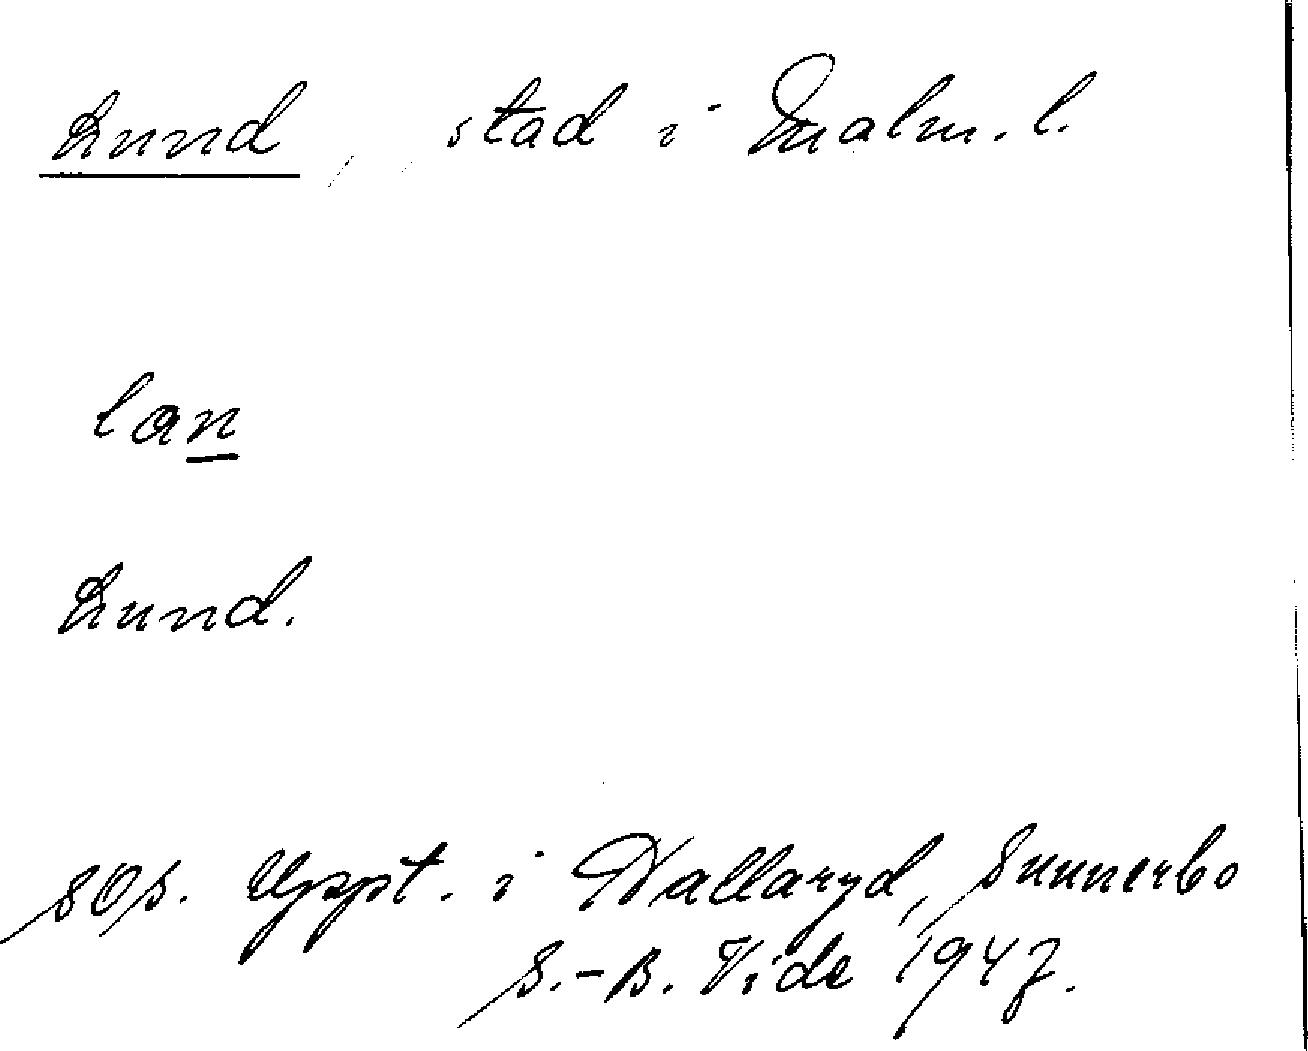 Lund, stad i Malm. l.
lan
Lund.
SOS. Uppt. i Hallaryd, Sunnerbo
S.-B. Vide 1947.